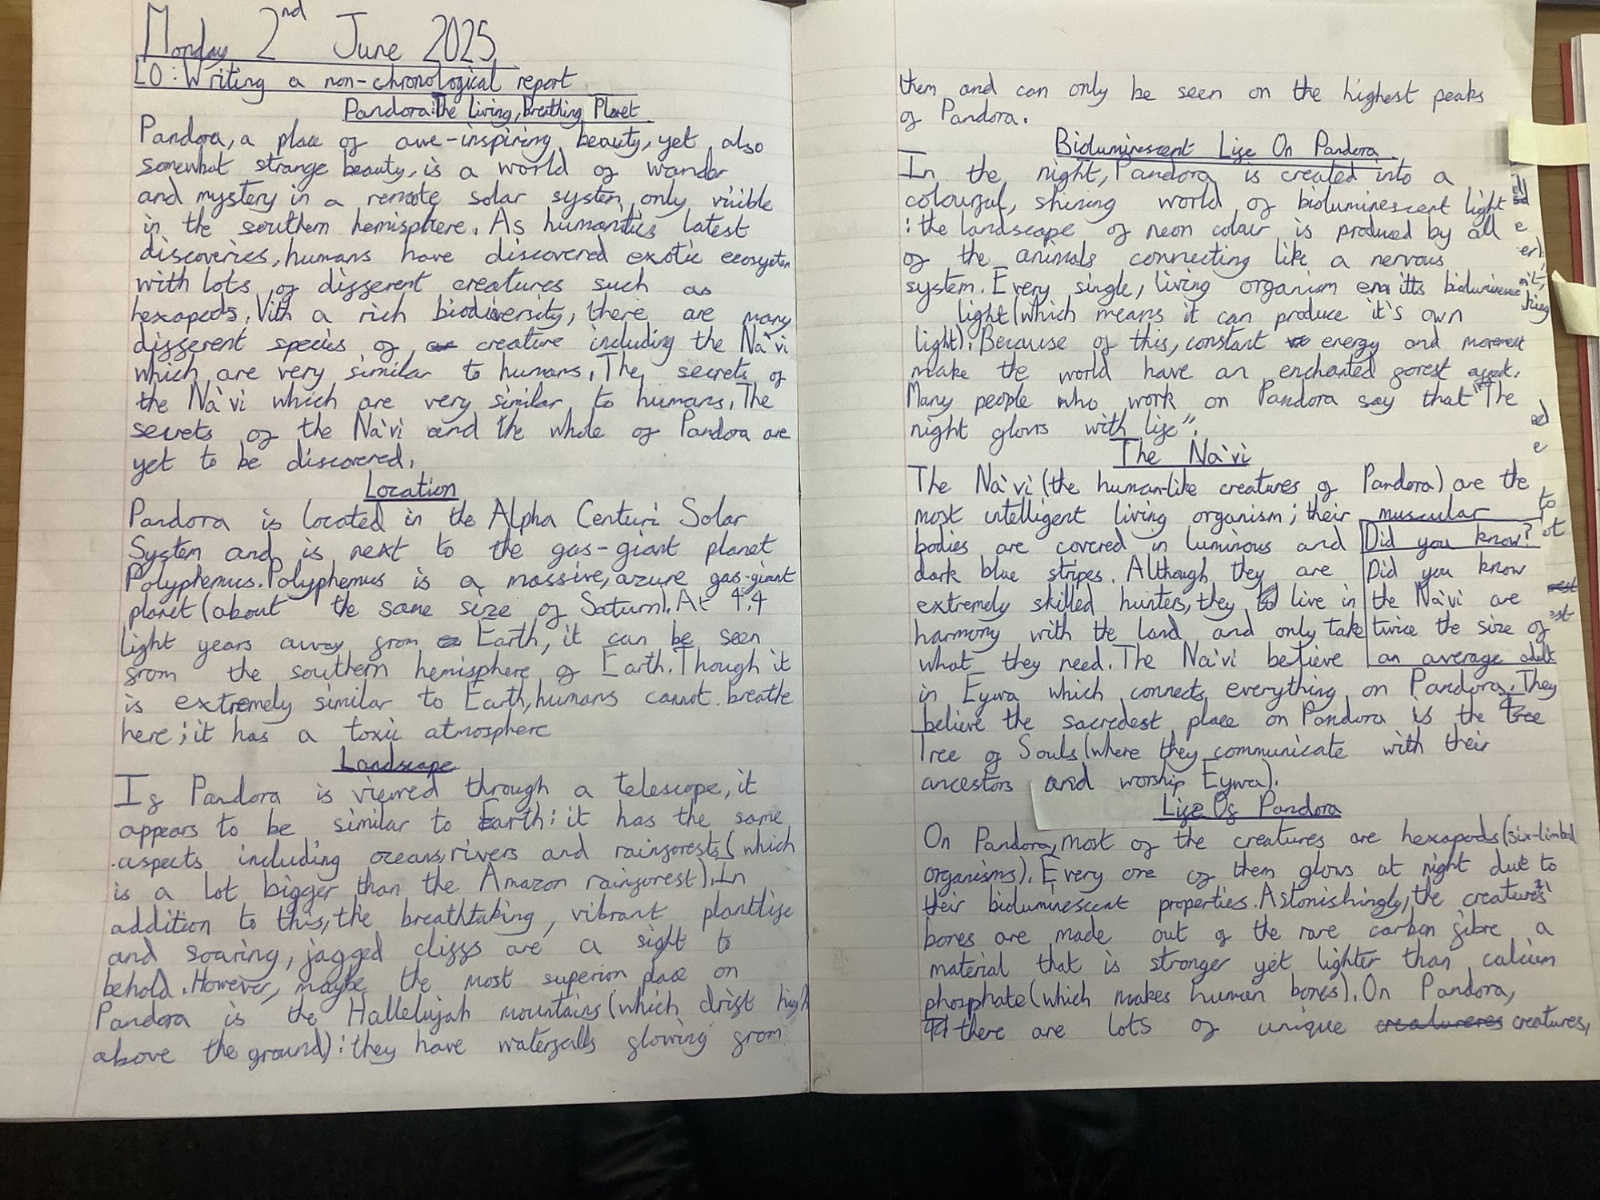 Monday 2nd June 2025
LO: Writing a non-chronological report
Pandora: The Living, Breathing Planet
Pandora, a place of awe-inspiring beauty, yet also
somewhat strange beauty, is a world of wander
and mystery in a remote solar system, only visible
in the southern hemisphere. As humanties latest
discoveries, humans have discovered exotic ecosystem
with lots of different creatures such as
hexapods. With a rich biodiversity, there are many
different species of creature including the Na'vi
which are very similar to humans. The secrets of
the Na'vi which are very similar to humans. The
secrets of the Na'vi and the whole of Pandora are
yet to be discovered.
Location
Pandora is located in the Alpha Centuri Solar
System and is next to the gas-giant planet
Polyphemus. Polyphemus is a massive, azure gas-giant
planet (about the same size of Saturn). At 4.4
light years away from Earth, it can be seen
from the southern hemisphere of Earth. Though it
is extremely similar to Earth, humans cannot breathe
here; it has a toxic atmosphere
Landscape
If Pandora is viewed through a telescope, it
appears to be similar to Earth: it has the same
aspects including oceans, rivers and rainforests (which
is a lot bigger than the Amazon rainforest). In
addition to this, the breathtaking, vibrant plantlife
and soaring, jagged cliffs are a sight to
behold. However, maybe the most superior place on
Pandora is the Hallelujah mountains (which drift high
above the ground): they have waterfalls flowing from
them and can only be seen on the highest peaks
of Pandora.
Bioluminescent Life On Pandora
In the night, Pandora is created into a
colourful, shining world of bioluminescent light
: the landscape of neon colour is produced by all
of the animals connecting like a nervous
system. Every single, living organism emitts
light (which means it can produce it's own
light). Because of this, constant energy and
make the world have an enchanted forest
Many people who work on Pandora say that "The
night glows with life".
The Na'vi
The Na'vi (the human-like creatures of Pandora) are the
most intelligent living organism; their muscular
bodies are covered in luminous and
dark blue stripes. Although they are
extremely skilled hunters, they live in
harmony with the land and only take
what they need. The Na'vi believe
Did you know?
Did you know
the Na'vi are
twice the size of
an average adult
in Eywa which connects everything on Pandora. They
believe the sacredest place on Pandora is the
Tree of Souls (where they communicate with their
ancestors and worship Eywa).
Life Of Pandora
On Pandora, most of the creatures are hexapods (six-limbed
organisms). Every one of them glows at night due to
their bioluminescent properties. Astonishingly, the creatures'
bones are made out of the rare carbon fibre a
material that is stronger yet lighter than calcium
phosphate (which makes human bones). On Pandora,
there are lots of unique creatures,